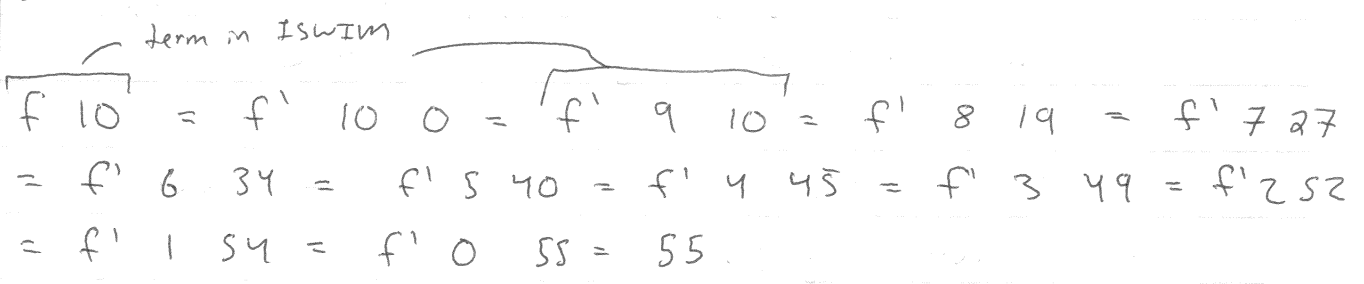 term in ISWIM
f 10 = f' 10 0 = f' 9 10 = f' 8 19 = f' 7 27
= f' 6 34 = f' 5 40 = f' 4 45 = f' 3 49 = f' 2 52
= f' 1 54 = f' 0 55 = 55